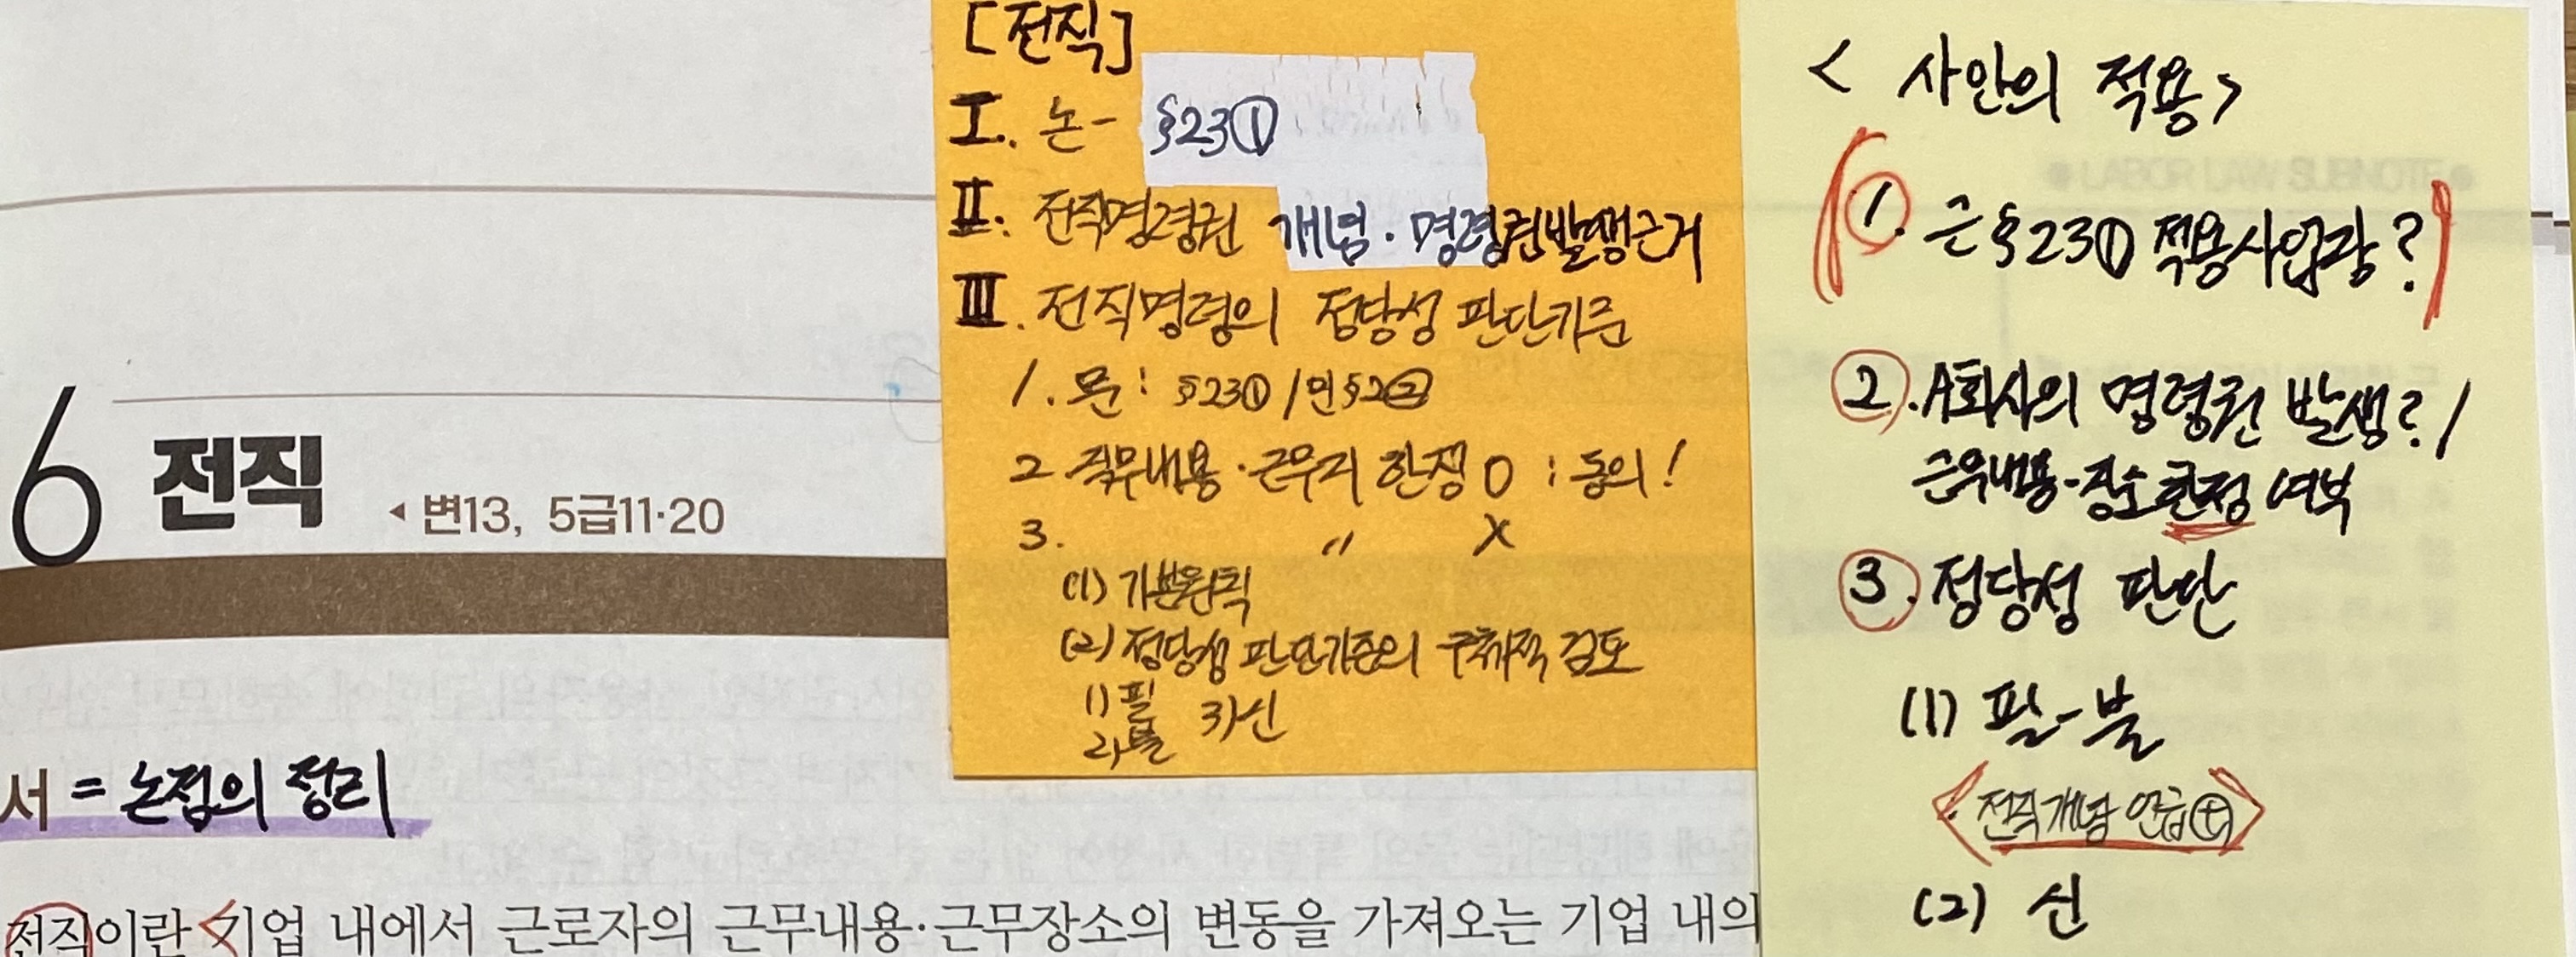 6 전직 ◂변13, 5급11·20
서 = 논점의 정리
전직이란 <기업 내에서 근로자의 근무내용·근무장소의 변동을 가져오는 기업 내의
[전직]
Ⅰ. 논- §23①
Ⅱ. 전직명령권 개념·명령권발생근거
Ⅲ. 전직명령의 정당성 판단기준
1. 문: §23① / 민§2②
2. 직무내용·근무지 한정 O : 동의!
3. 〃 X
(1) 기본원칙
(2) 정당성 판단기준의 구체적 검토
1) 필 3) 신
2) 불
< 사안의 적용>
( 1. 근§23① 적용사업장? )
2. A회사의 명령권 발생? /
근무내용·장소 한정 여부
3. 정당성 판단
(1) 필-불
<전직개념 언급⊕>
(2) 신